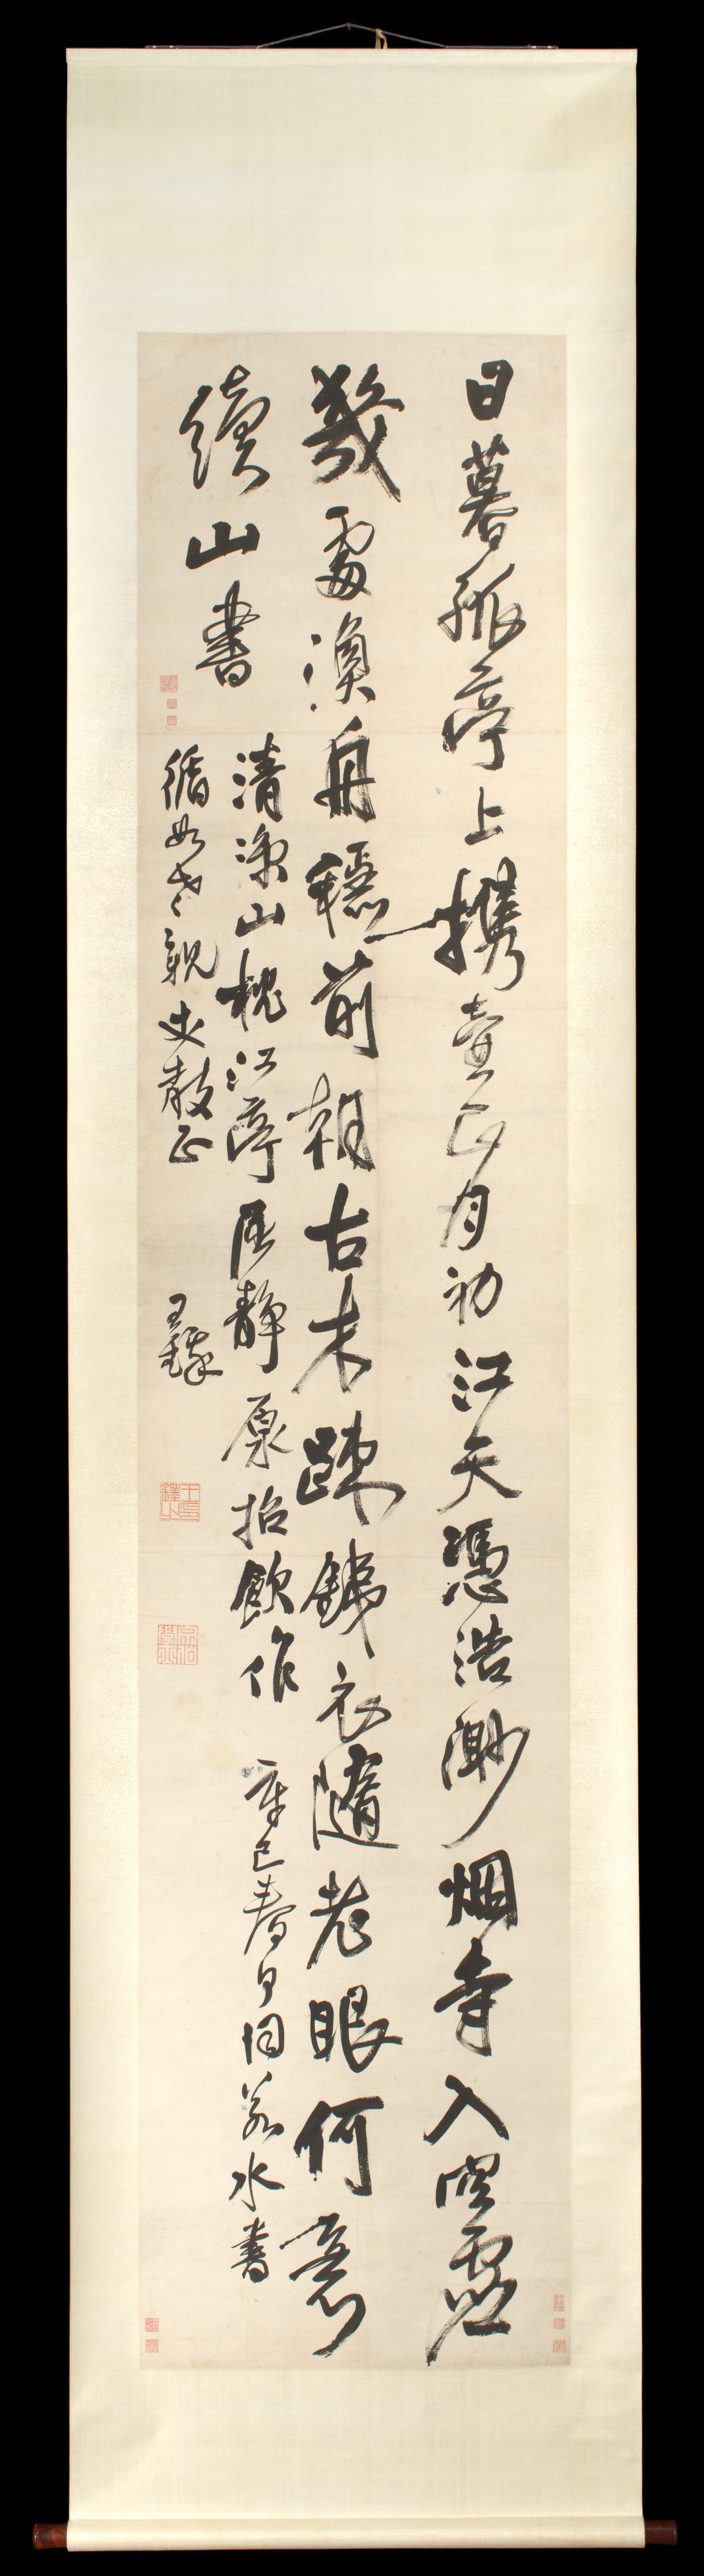 日暮孤亭上携壺正月初江天憑浩渺烟寺入虛
幾處漁舟穩前朝古木疎銕衣隨老眼何意
續山書
清涼山枕江亭居靜原招飲作 辛巳春日同若水書
循如老親丈教正 王鐸
王鐸之印